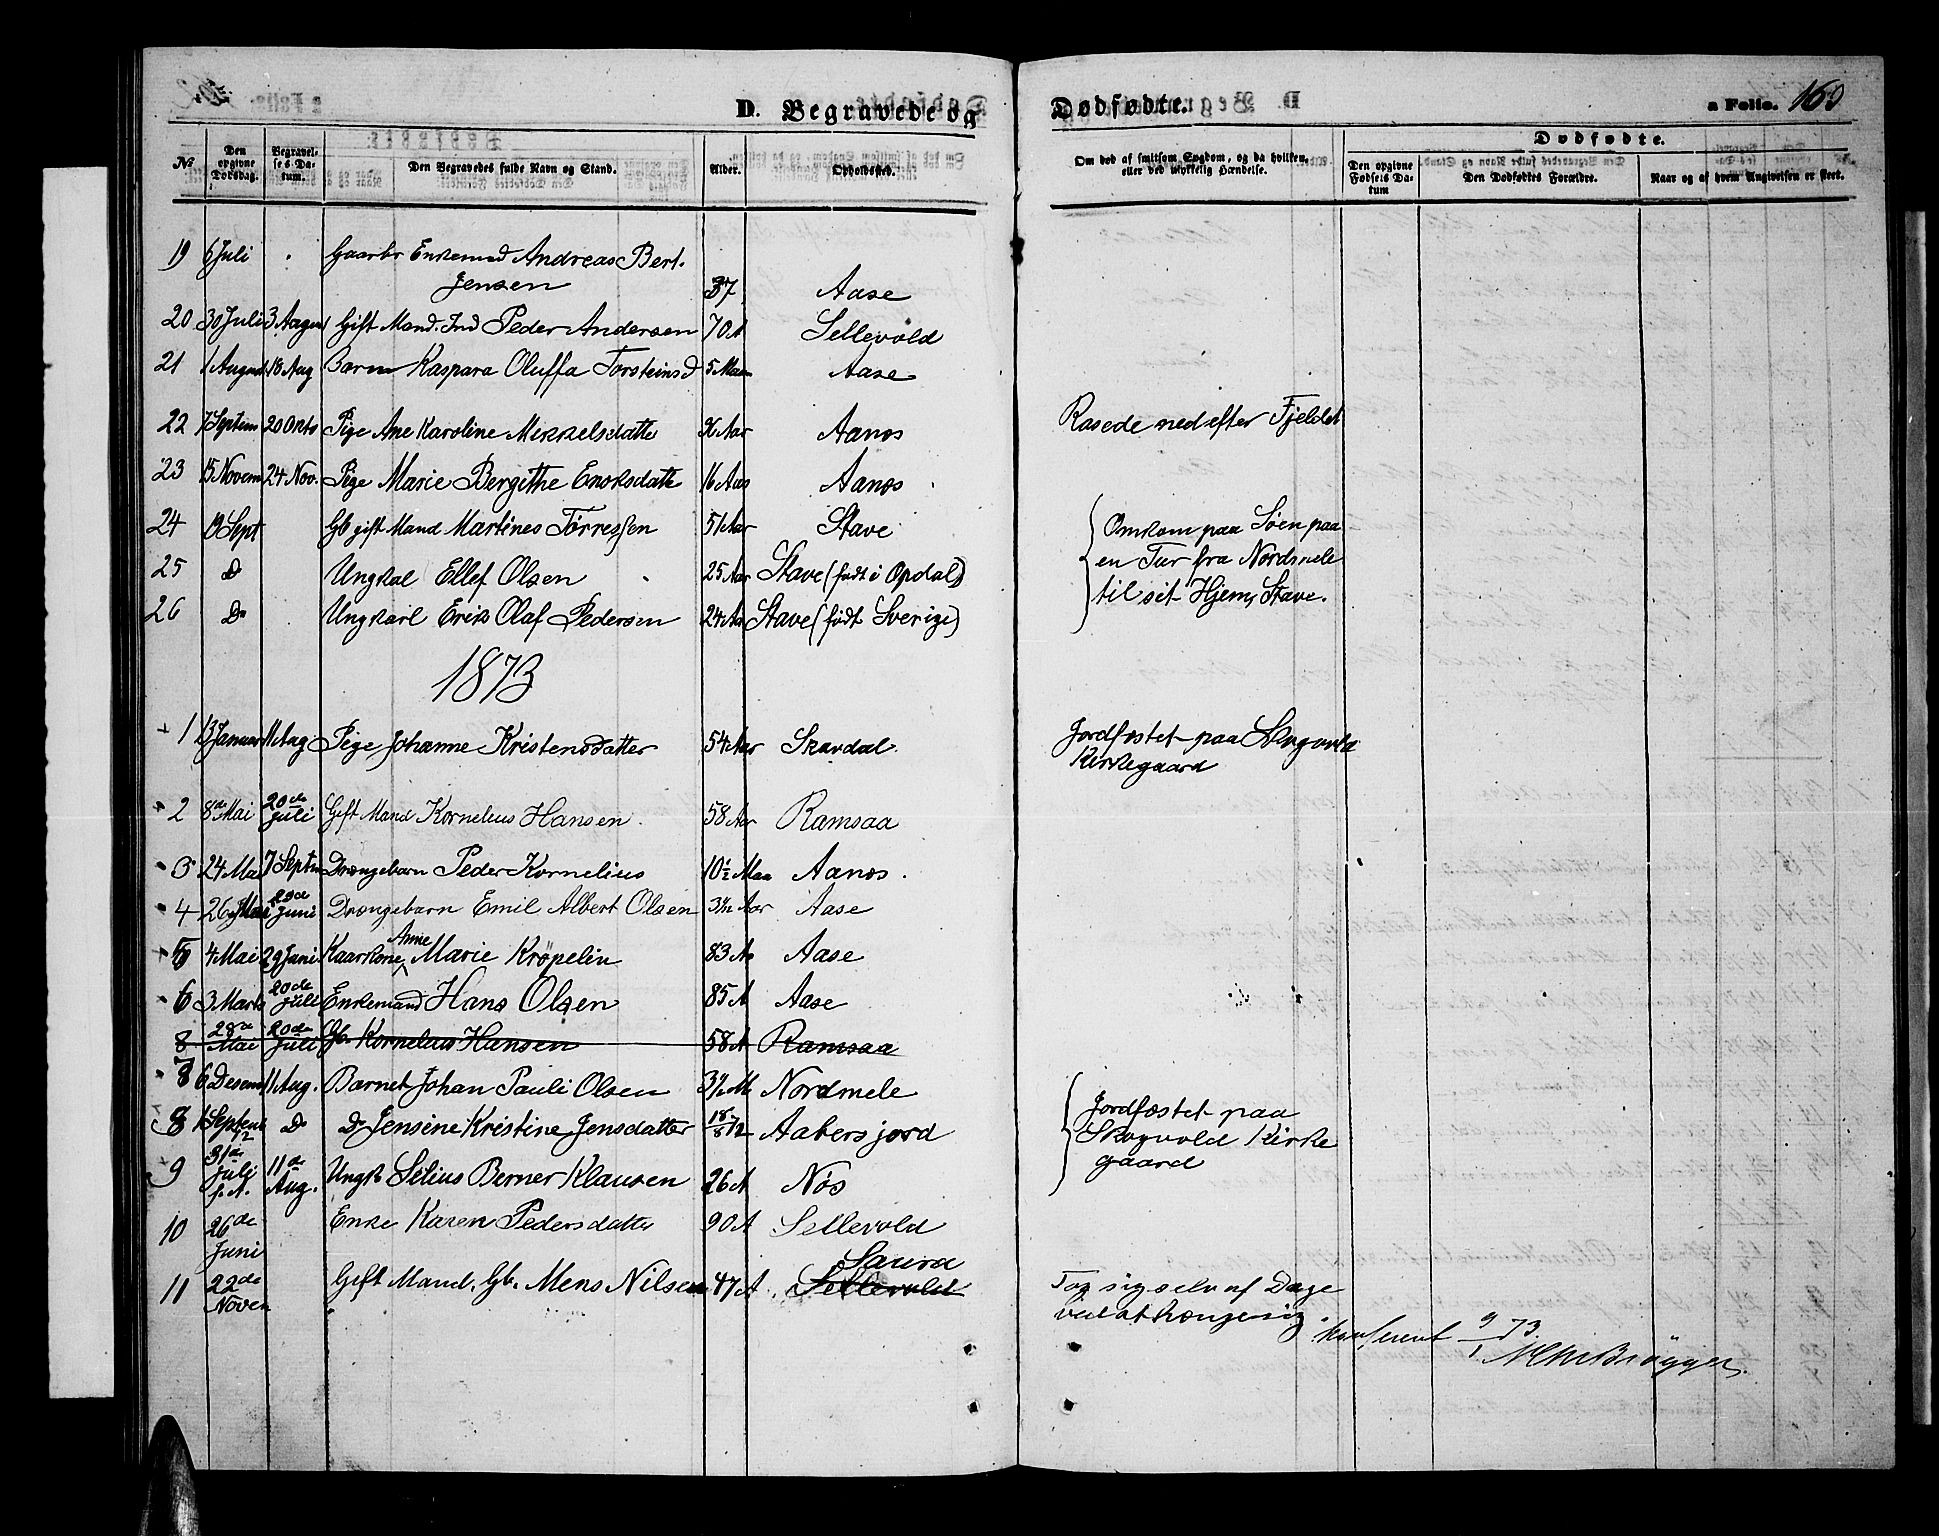 D. Begravede og Dødfødte. a Folio. 160
Dødfødte.
No Den opgivne Dødsdag. Begravelses Datum. Den Begravedes fulde Navn og Stand. Alder. Opholdssted. Om død af smitsom Sygdom, og da hvilken, eller ved ulykkelig Hændelse. Den opgivne Fødsels Datum Den Dødfødtes Forældre. Naar og af hvem Angivelsen er skeet.
19 6 Juli Gaarbr Enkemand Andreas Bert.
Jensen 37 Aase
20 30 Juli 3 August Gift Mand. Ind Peder Andersen 70 A Sellevold
21 1 August 18 Aug Barn Kaspara Oluffa Torsteinsd 5 Maan Aase
22 7 Septem 20 Okto Pige Ane Karoline Mikkelsdatte Aar Aanes Rasede ned efter Fjeldet
23 15 Novem 24 Nov. Pige Marie Bergithe Eriksdatte 16 Aar Aanes
24 19 Sept Gb gift Mand Martines Tørressen 51 Aar Stave Omkom paa Søen paa
25 Do Ungkal Ellef Olsen 25 Aar Stave (født i Opdal) en Tur fra Nordmele
26 Do Ungkarl Erik Olaf Pedersen 24 Aa Stave (født Sverige) til sit Hjem, Stave.
1873
1 13 Januar 11 Aug Pige Johanne Kristensdatter 54 Aar Skavdal Jordfæstet paa Skogvold
Kirkegaard
2 8de Mai 20de Juli Gift Mand Kornelius Hansen 58 Aar Ramsaa
3 24 Mai 7 Septm Drengebarn Peder Kornelius 10½ Maa Aanes.
4 26 Juni Drængebarn Emil Albert Olsen Aar Aase
5 4 Mai 29 Juni Kaarkone Anne Marie Krøpelin 83 Aa Aase
6 3 Marts 20de Juli Enkemand Hans Olsen 85 A Aase
8 28de Mai 20de Juli Gb. Kornelius Hansen 58 A Ramsaa
7 6 Desem 11 Aug. Barnet Johan Pauli Olsen 3½ M Nordmele
8 1 Septemb 12 Do Do Jensine Kristine Jensdatter 18/8 72 Aabersjord Jordfæstet paa
Skogvold Kirke
gaard
9 31de Juli f. A. 11de Aug. Ungk Selius Berner Klausen 26 A Nøs
10 26de Juni Enke Karen Pedersdatte 90 A Sellevold
Saura
11 22de Novem Gift Mand. Gb. Mens Nilsen 47 A Sellevold Tog sig selv af Dage
ved at hængesig
Konfereret 9/1 73.
Brøgger.